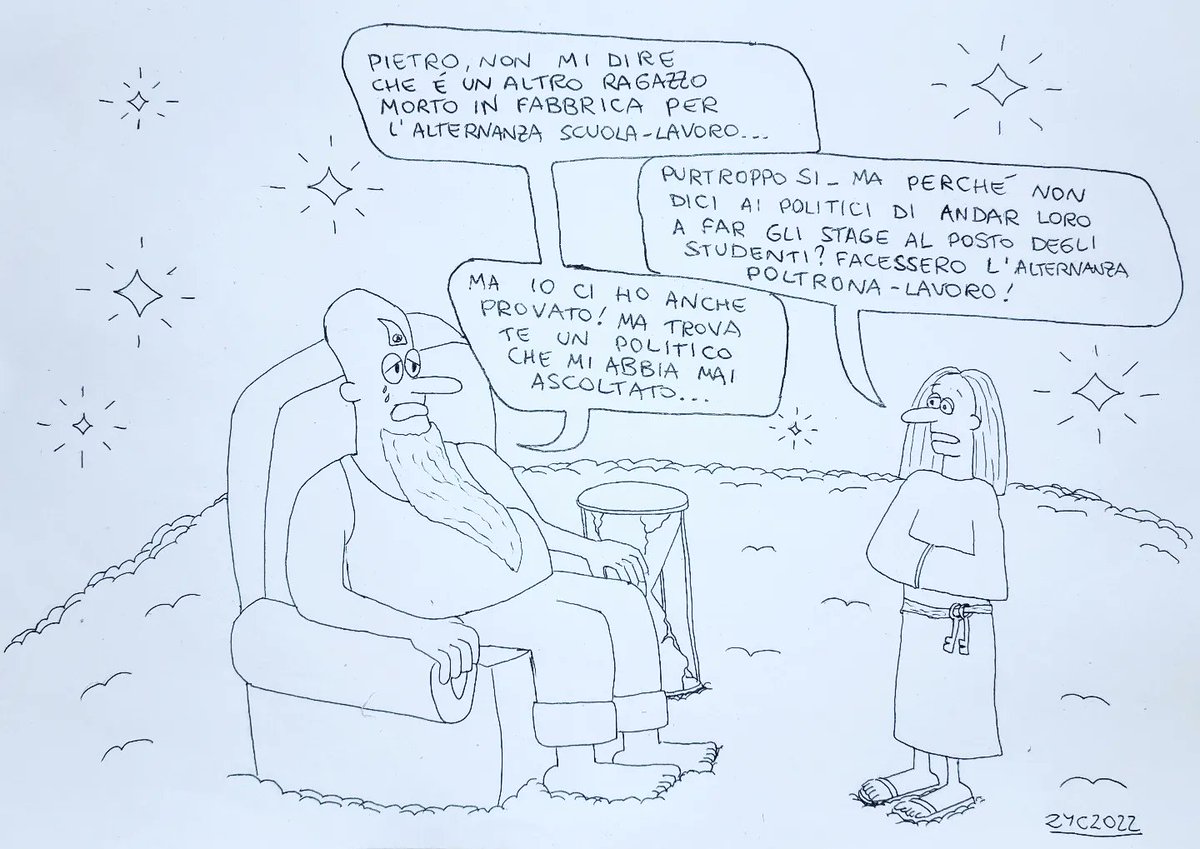 PIETRO, NON MI DIRE
CHE É UN ALTRO RAGAZZO
MORTO IN FABBRICA PER
L'ALTERNANZA SCUOLA-LAVORO...
PURTROPPO SI_ MA PERCHÉ NON
DICI AI POLITICI DI ANDAR LORO
A FAR GLI STAGE AL POSTO DEGLI
STUDENTI? FACESSERO L'ALTERNANZA
POLTRONA-LAVORO!
MA IO CI HO ANCHE
PROVATO! MA TROVA
TE UN POLITICO
CHE MI ABBIA MAI
ASCOLTATO...
ZYC2022